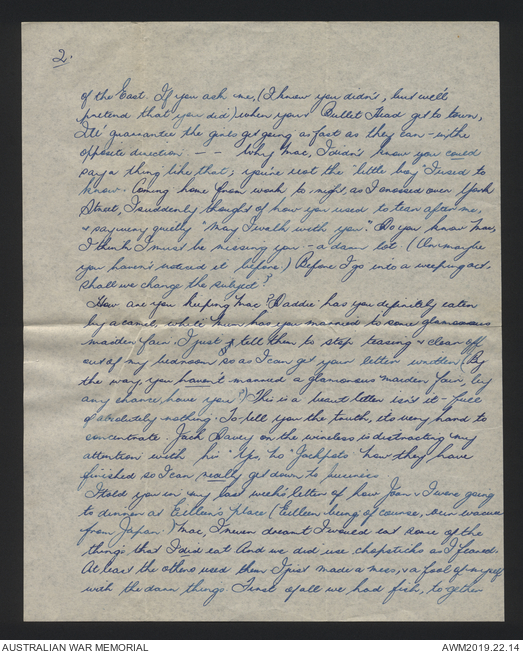 2.
of the East. If you ask me, (I know you didn't, but we'll
pretend that you did) when your Bullet Head get to town,
I'll guarantee the girls get going as fast as they can - in the
opposite direction - - Why Mac, I didn't know you could
say a thing like that; you're not the "little boy" I used to
know. Coming home from work to-night, as I crossed over York
Street, I suddenly thought of how you used to tear after me,
& say very quietly "May I walk with you." Do you know Mac,
I think I must be missing you - a darn lot. (Or maybe
you haven't noticed it before.) Before I go into a weeping act.
Shall we change the subject?
How are you keeping Mac? Daddie has you definitely eaten
by a camel, while Mum has you married to some glamorous
maiden fair. I just tell them to stop teasing & clear off
out of my bedroom so as I can get your letter written (By
the way, you haven't married a glamorous maiden fair, by
any chance, have you?) This is a beaut letter isn't it - full
of absolutely nothing. To tell you the truth, its very hard to
concentrate. Jack Davey on the wireless is distracting my
attention with his "Yes, No" Jackpots. Now they have
finished so I can really get down to business.
I told you in my last week's letter of how Joan & I were going
to dinner at Eilleen's place (Eilleen being of course, our
from Japan. Mac, I never dreamt I would eat some of the
things that I did eat And we did use chopsticks as I feared.
At least the others used them I just made a mess, & a fool of myself
with the darn things. First of all we had fish, to-gether
AUSTRALIAN WAR MEMORIAL
AWM2019.22.14